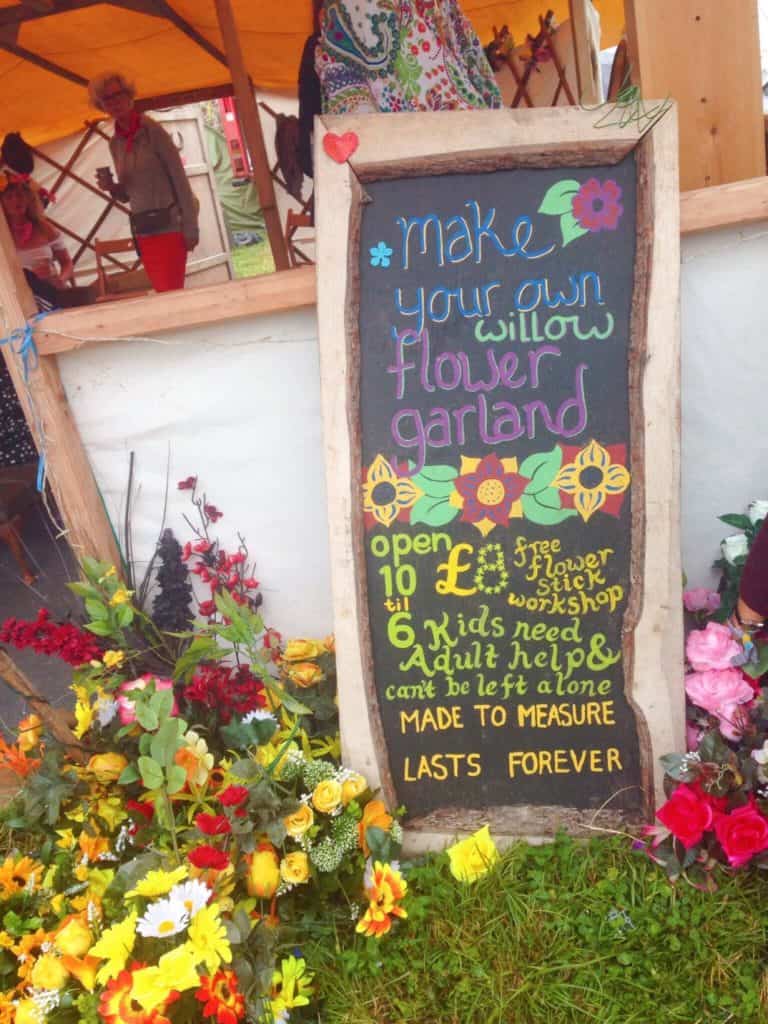 make
your own
willow
flower
garland
open
10
til
6
£8
free
flower
stick
workshop
Kids need
Adult help &
can't be left alone
MADE TO MEASURE
LASTS FOREVER